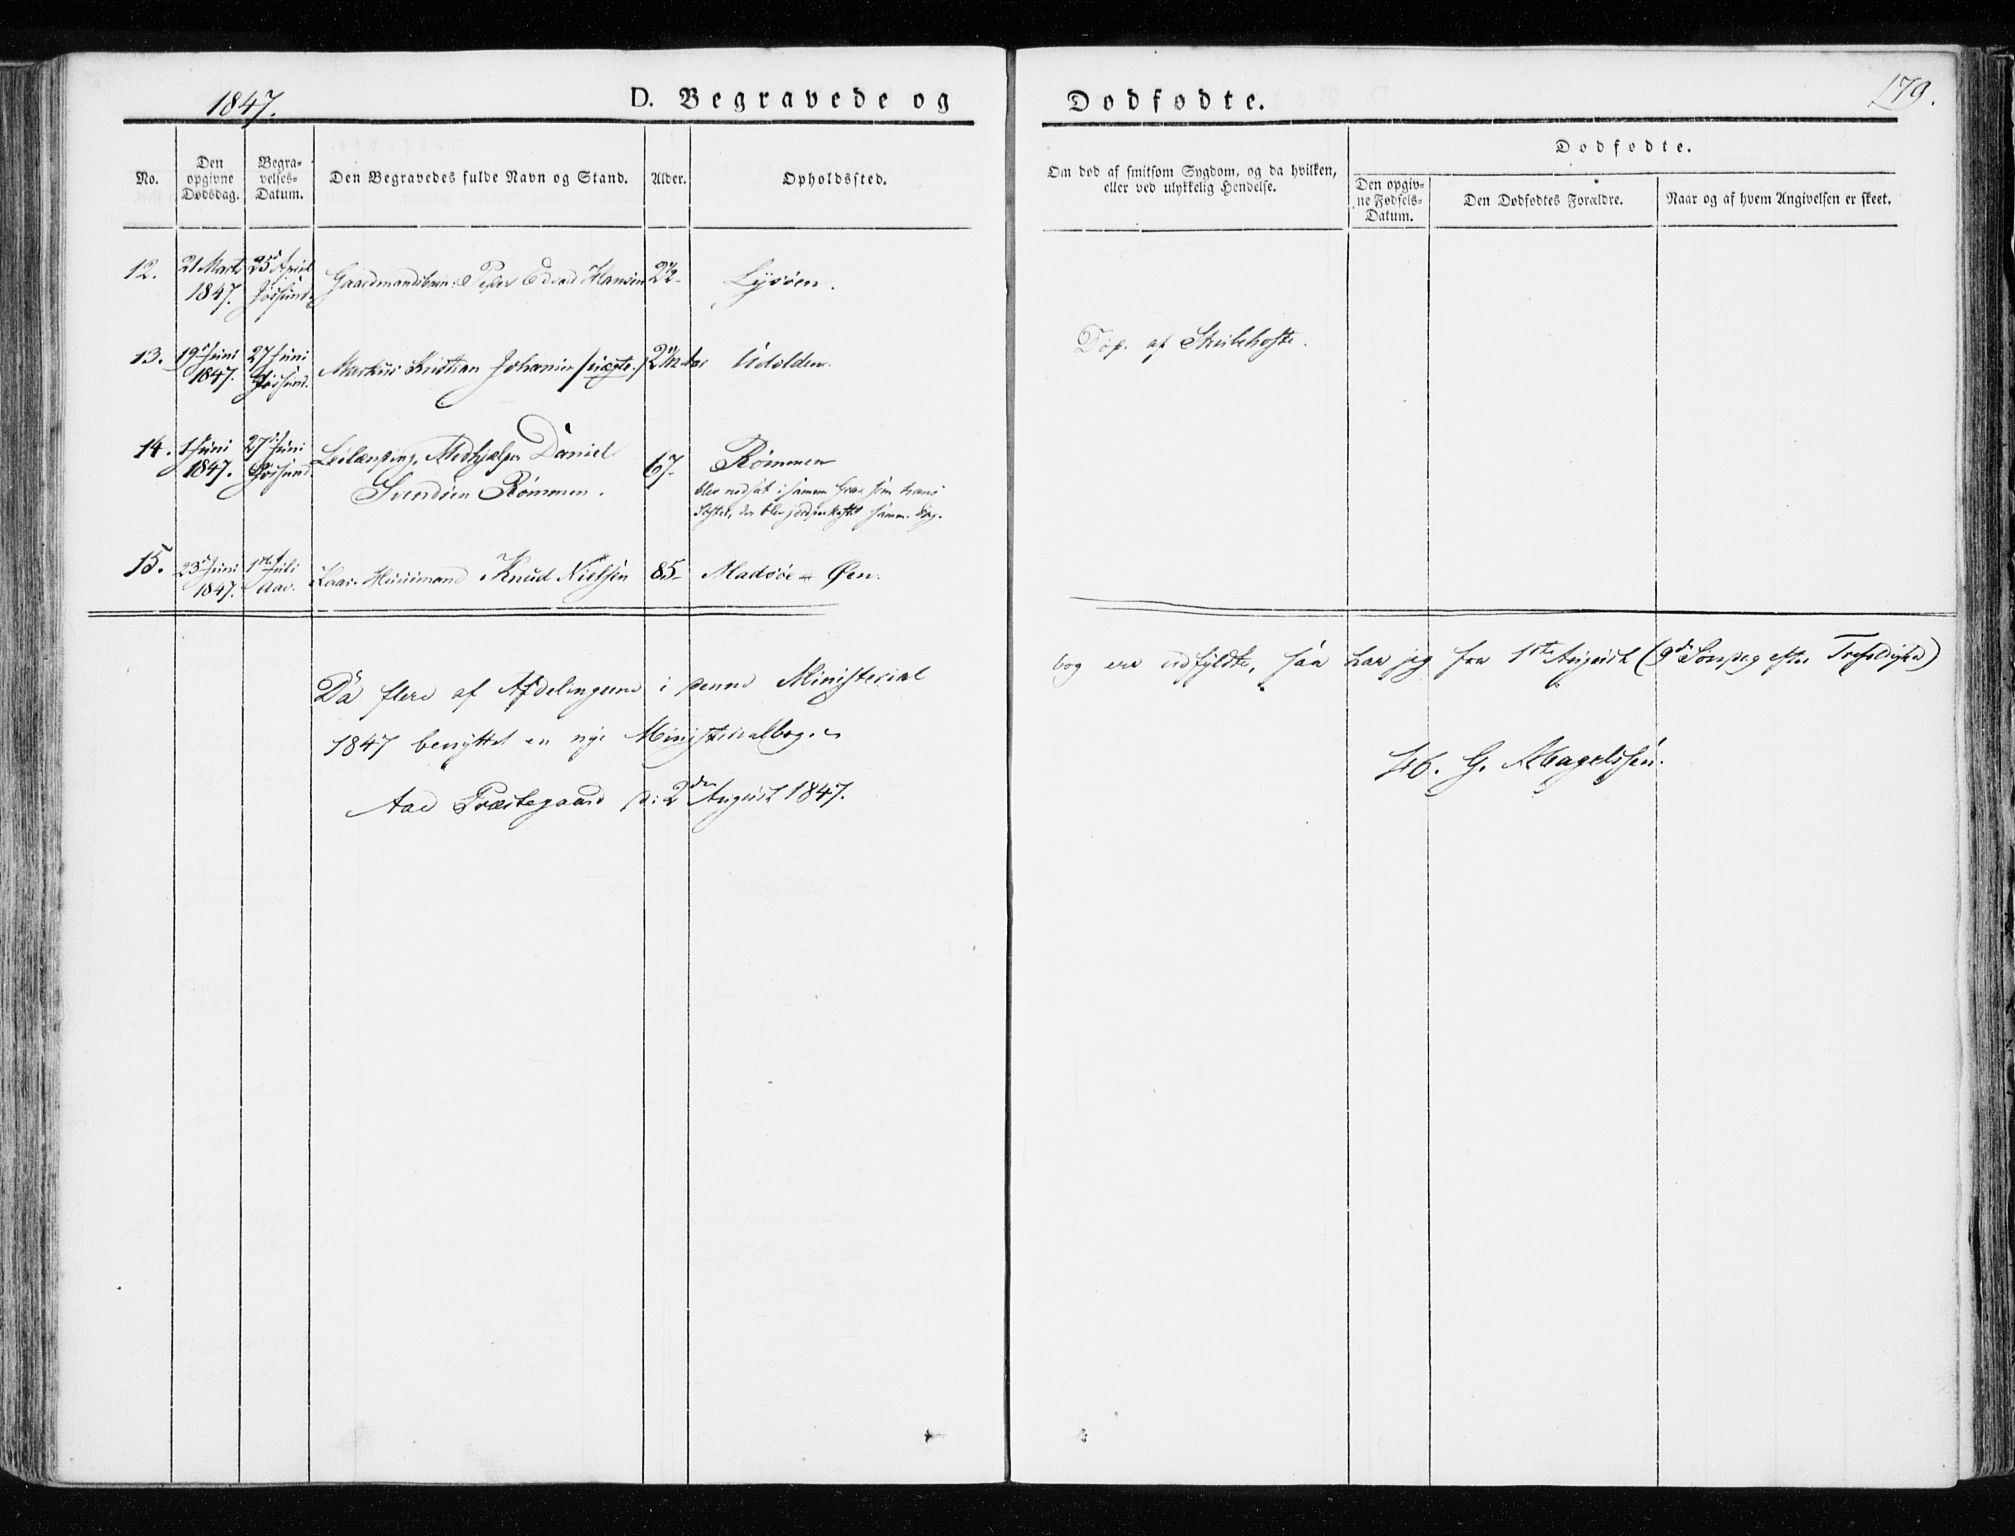 1847.
D. Begravede og
Dødfødte.
179.
No.
Den opgivne Dødsdag.
Begravelses-Datum.
Den Begravedes fulde Navn og Stand.
Alder.
Opholdssted.
Om død af smitsom Sygdom, og da hvilken, eller ved ulykkelig Hendelse.
Dødfødte.
Den opgivne Fødsels-Datum.
Den Dødfødtes Forældre.
Naar og af hvem Angivelsen er skeet.
12. 21 Marts 1847. 25 April Jøssund. Gaardmandsbarn Peder Edvard Hansen 2½ Lysøen.
13. 19 Juni 1847. 27 Juni Jøssund. Markus Kristian Johansen /uægte./ Udolden.
Døp. af Strubehoste.
14. 1 Juni 1847. 27 Juni Jøssund. Medhjælper Daniel
Svendsen Rømmen. 67 Rømmen
blev nedsat i samme Grav som hans
Søster, der blev jordpaakastet samme Dag.
15. 23 Juni 1847. 1ste Juli Aae. Huusmand Knud Nielsen 85 Madsøe Øen.
Da flere af Afdelingerne i denne Ministerial
bog ere udfyldte, saa har jeg fra 1ste August (9de Søndag efter Trefoldighed)
1847 benyttet en nye Ministerialbog.
Aae Præstegaard d: 2den August 1847.
G. Magelssen.